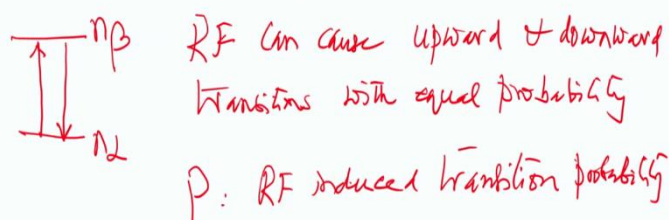 nβ
RF can cause upward & downward
transitions with equal probability
nα
P: RF induced transition probability